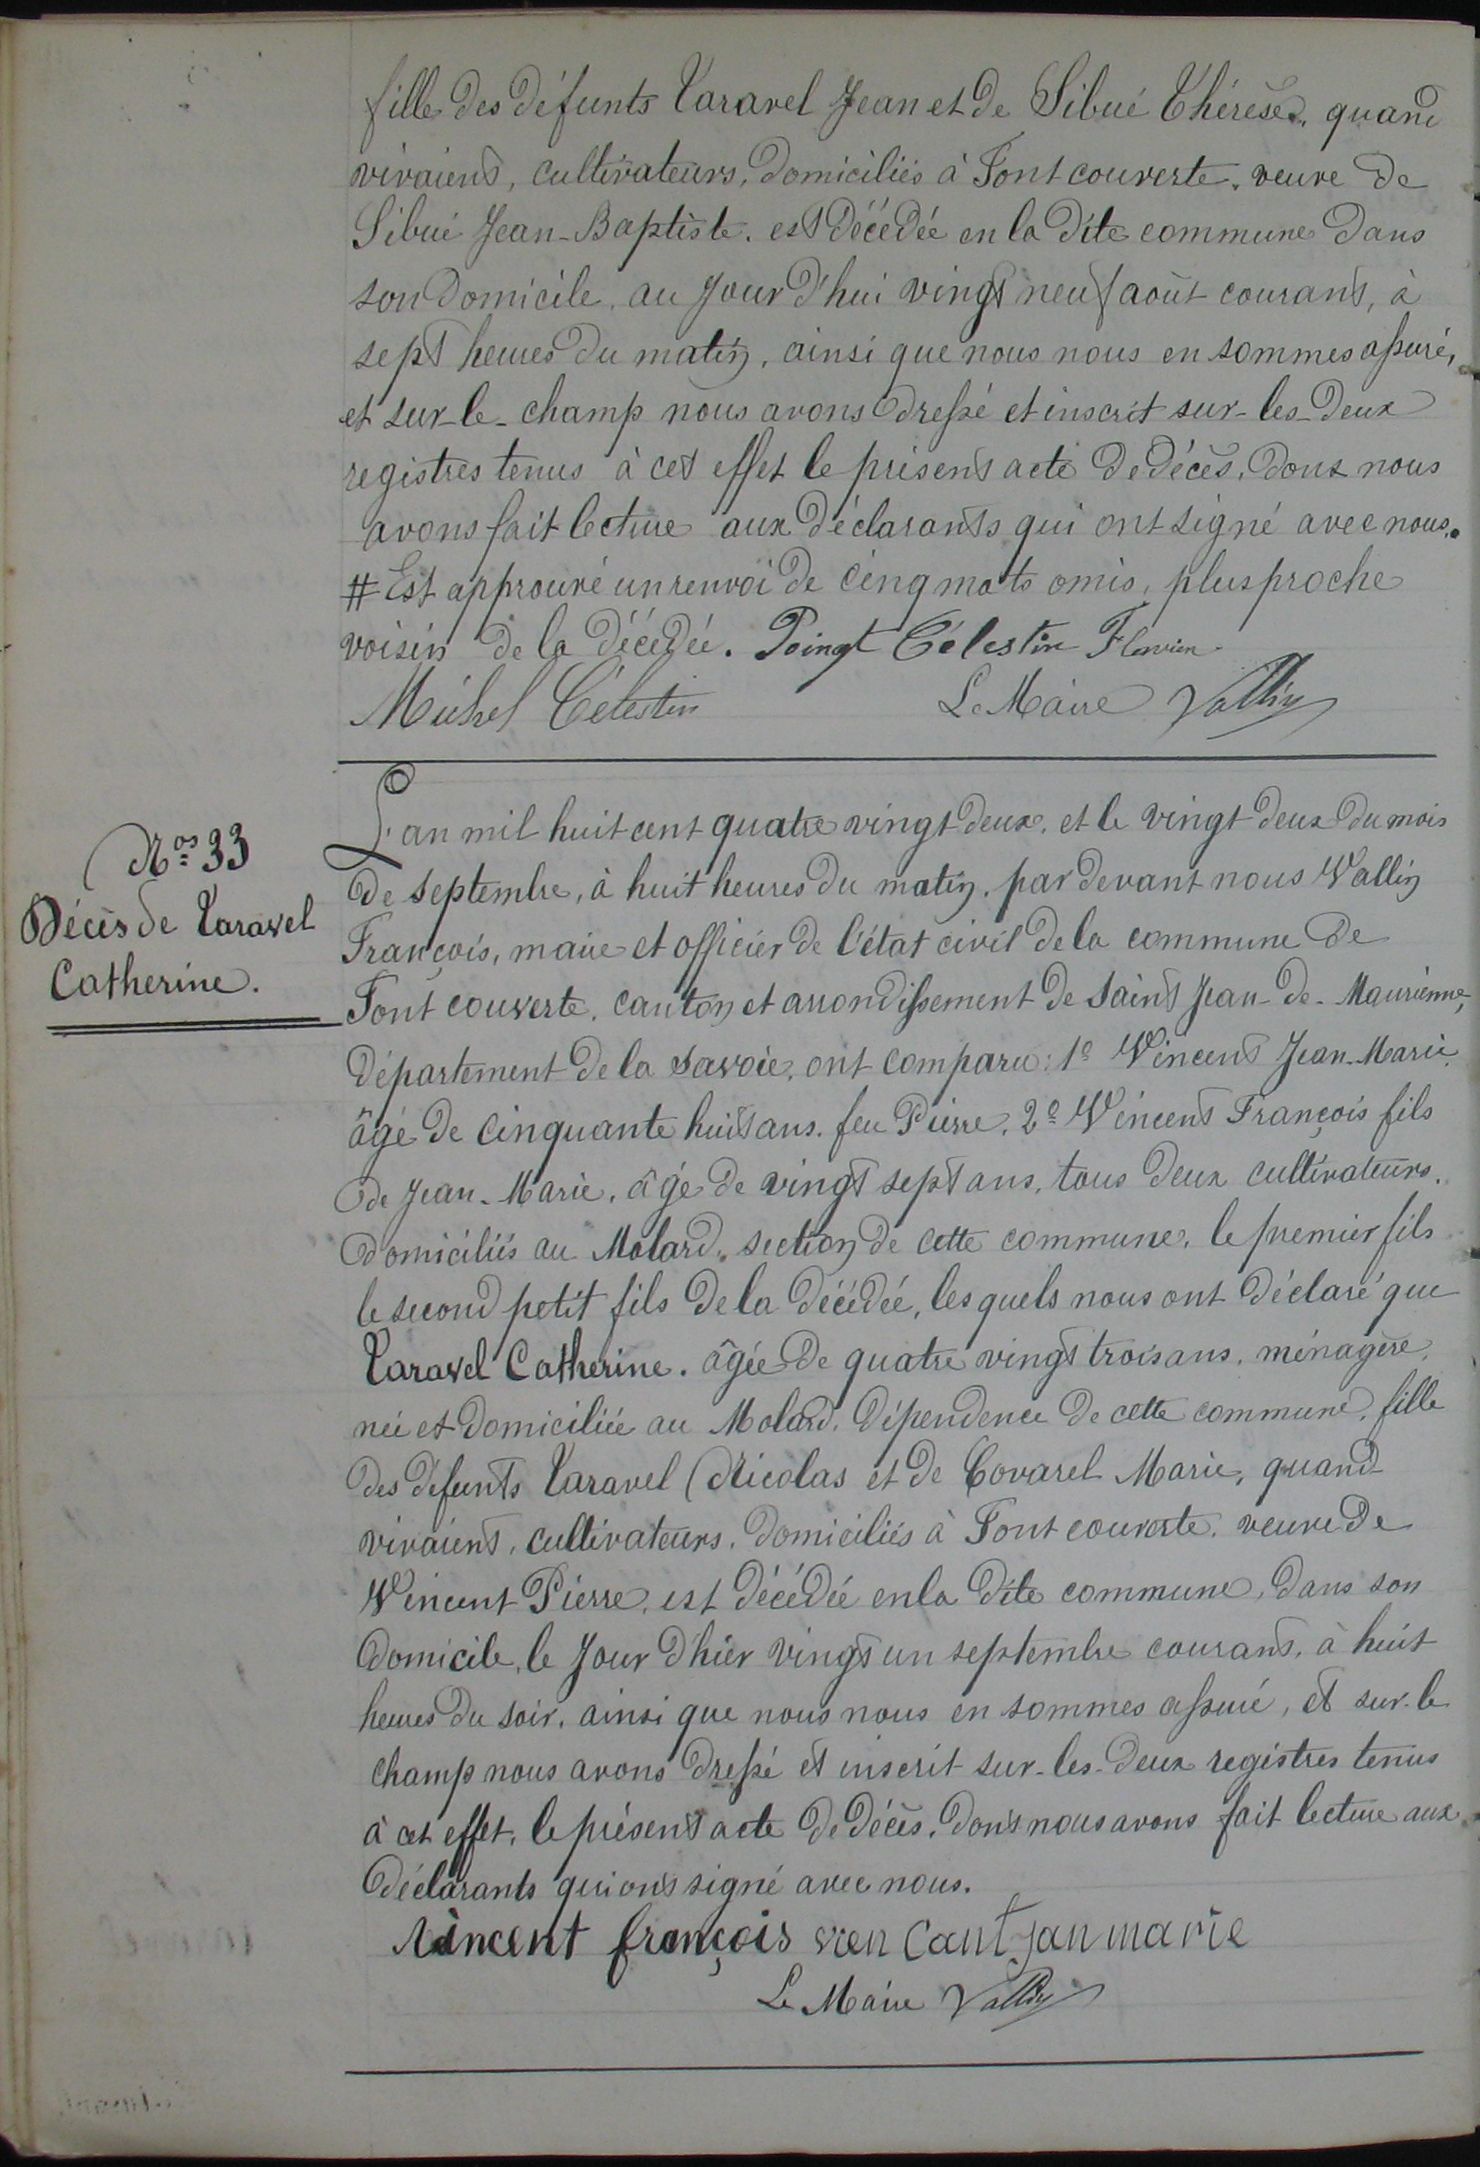 fille des défunts Taravel Jean et de Sibué Thérèse, quand
vivaient, cultivateurs, domiciliés à Fontcouverte, veuve de
Sibué Jean-Baptiste. est décédée en la dite commune dans
son domicile, au jour d'hui vingt neuf août courant, à
sept heures du matin, ainsi que nous nous en sommes assuré,
et sur-le-champ nous avons dressé et inscrit sur-les-deux
registres tenus à cet effet le présent acte de décès, dont nous
avons fait lecture aux déclarants qui ont signé avec nous.
# Est approuvé un renvoi de cinq mots omis, plus proche
voisin de la décédée. Poingt Célestin Flavien
Michel Célestin Le Maire Vallin
L'an mil huit cent quatre vingt deux, et le vingt deux du mois
Nos 33
de septembre, à huit heures du matin, par devant nous Vallin
Décès de Taravel
François, maire et officier de l'état civil de la commune de
Catherine.
Font couverte, canton et arrondissement de Saint Jean-de-Maurienne,
département de la Savoie, ont comparu: 1o Vincent Jean-Marie,
âgé de cinquante huit ans, feu Pierre, 2o Vincent François fils
de Jean-Marie, âgé de vingt sept ans, tous deux cultivateurs,
domiciliés au Molard, section de cette commune, le premier fils
le second petit fils de la décédée, les quels nous ont déclaré que
Taravel Catherine. âgée de quatre vingt trois ans, ménagère,
née et domiciliée au Molard, dépendence de cette commune, fille
des défunts Taravel Nicolas et de Covarel Marie, quand
vivaient, cultivateurs, domiciliés à Font couverte, veuve de
Vincent Pierre, est décédée en la dite commune, dans son
domicile, le jour d'hier vingt un septembre courant, à huit
heures du soir, ainsi que nous nous en sommes assuré, et sur-le
champ nous avons dressé et inscrit sur-les-deux registres tenus
à cet effet, le présent acte de décès, dont nous avons fait lecture aux
déclarants qui ont signé avec nous.
Vincent françois vien cant jan marie
Le Maire Vallin